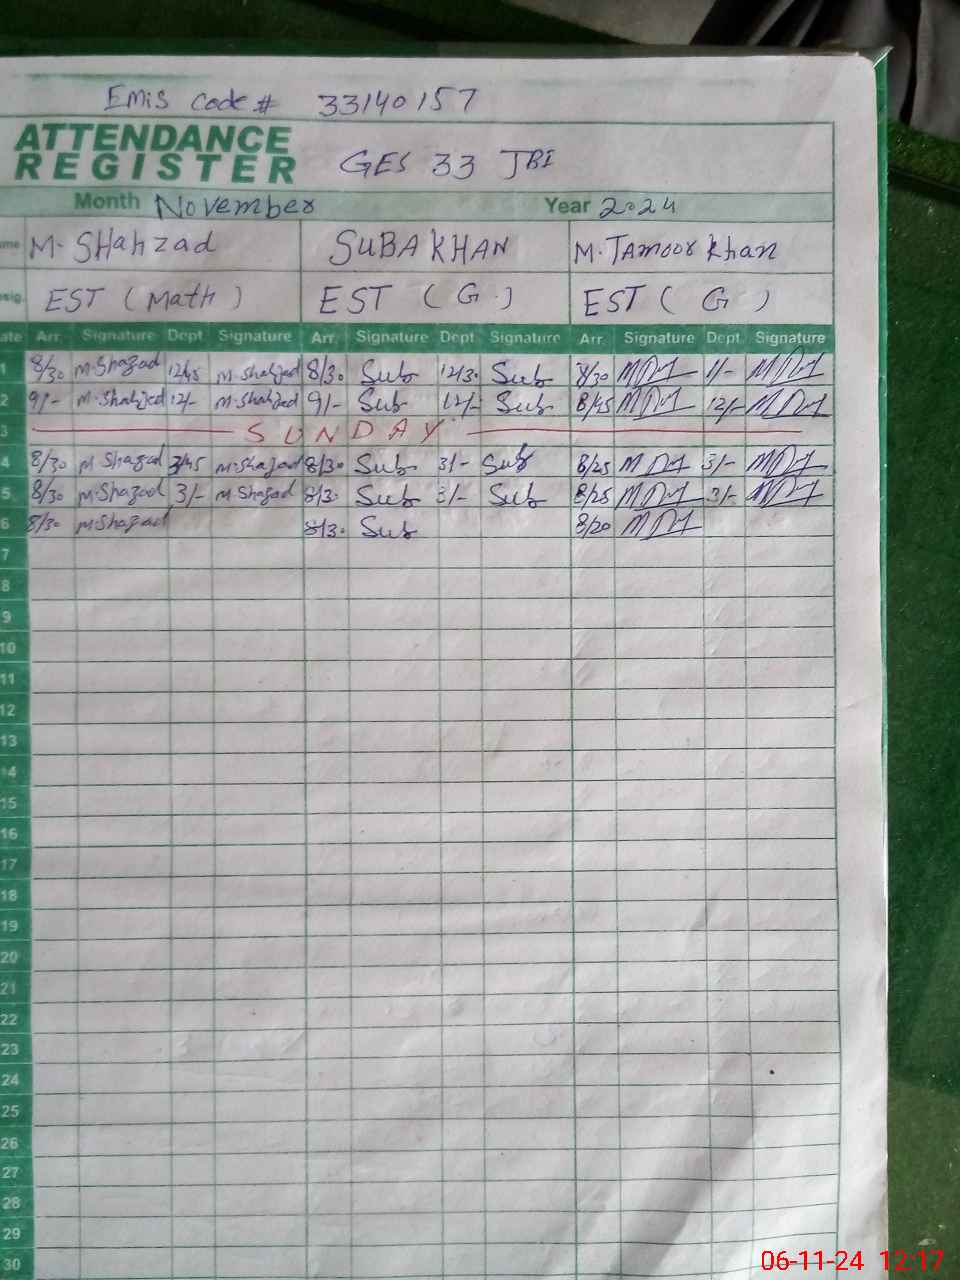 Emis Code # 33140157
ATTENDANCE REGISTER GES 33 JBI
Month November Year 2024
M. SHahzad SUBA KHAN M. TAmoor Khan
EST (Math) EST (G.) EST (G)
Arr. Signature Dept Signature Arr. Signature Dept Signature Arr. Signature Dept. Signature
1 8/30 M.Shazad 12/45 M.Shahzad 8/30 Sub 12/30 Sub 8/30 11/-
2 9/- M.Shahzed 12/- M.Shahzed 9/- Sub 12/- Sub 8/45 12/-
3 SUNDAY
4 8/30 M Shazad 3/45 M.Shazad 8/30 Sub 3/- Sub 8/25 3/-
5 8/30 M.Shazad 3/- M Shazad 8/30 Sub 3/- Sub 8/25 3/-
6 8/30 M.Shazad 8/30 Sub 8/20
7
8
9
10
11
12
13
14
15
16
17
18
19
20
21
22
23
24
25
26
27
28
29
30
06-11-24 12:17